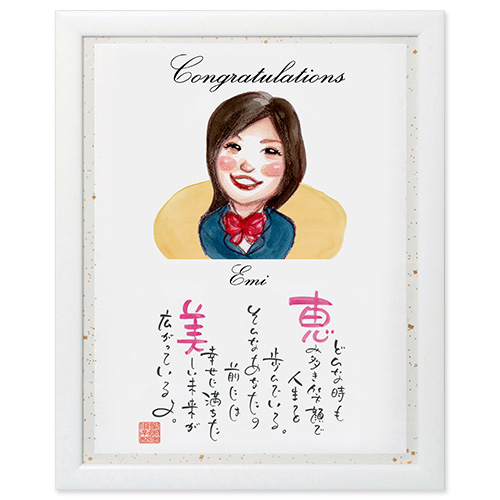 Congratulations
Emi
どんな時も
恵み多き笑顔で
人生を
歩んでいる。
そんなあなたの
前には
幸せに満ちた
美しい未来が
広がっているよ。